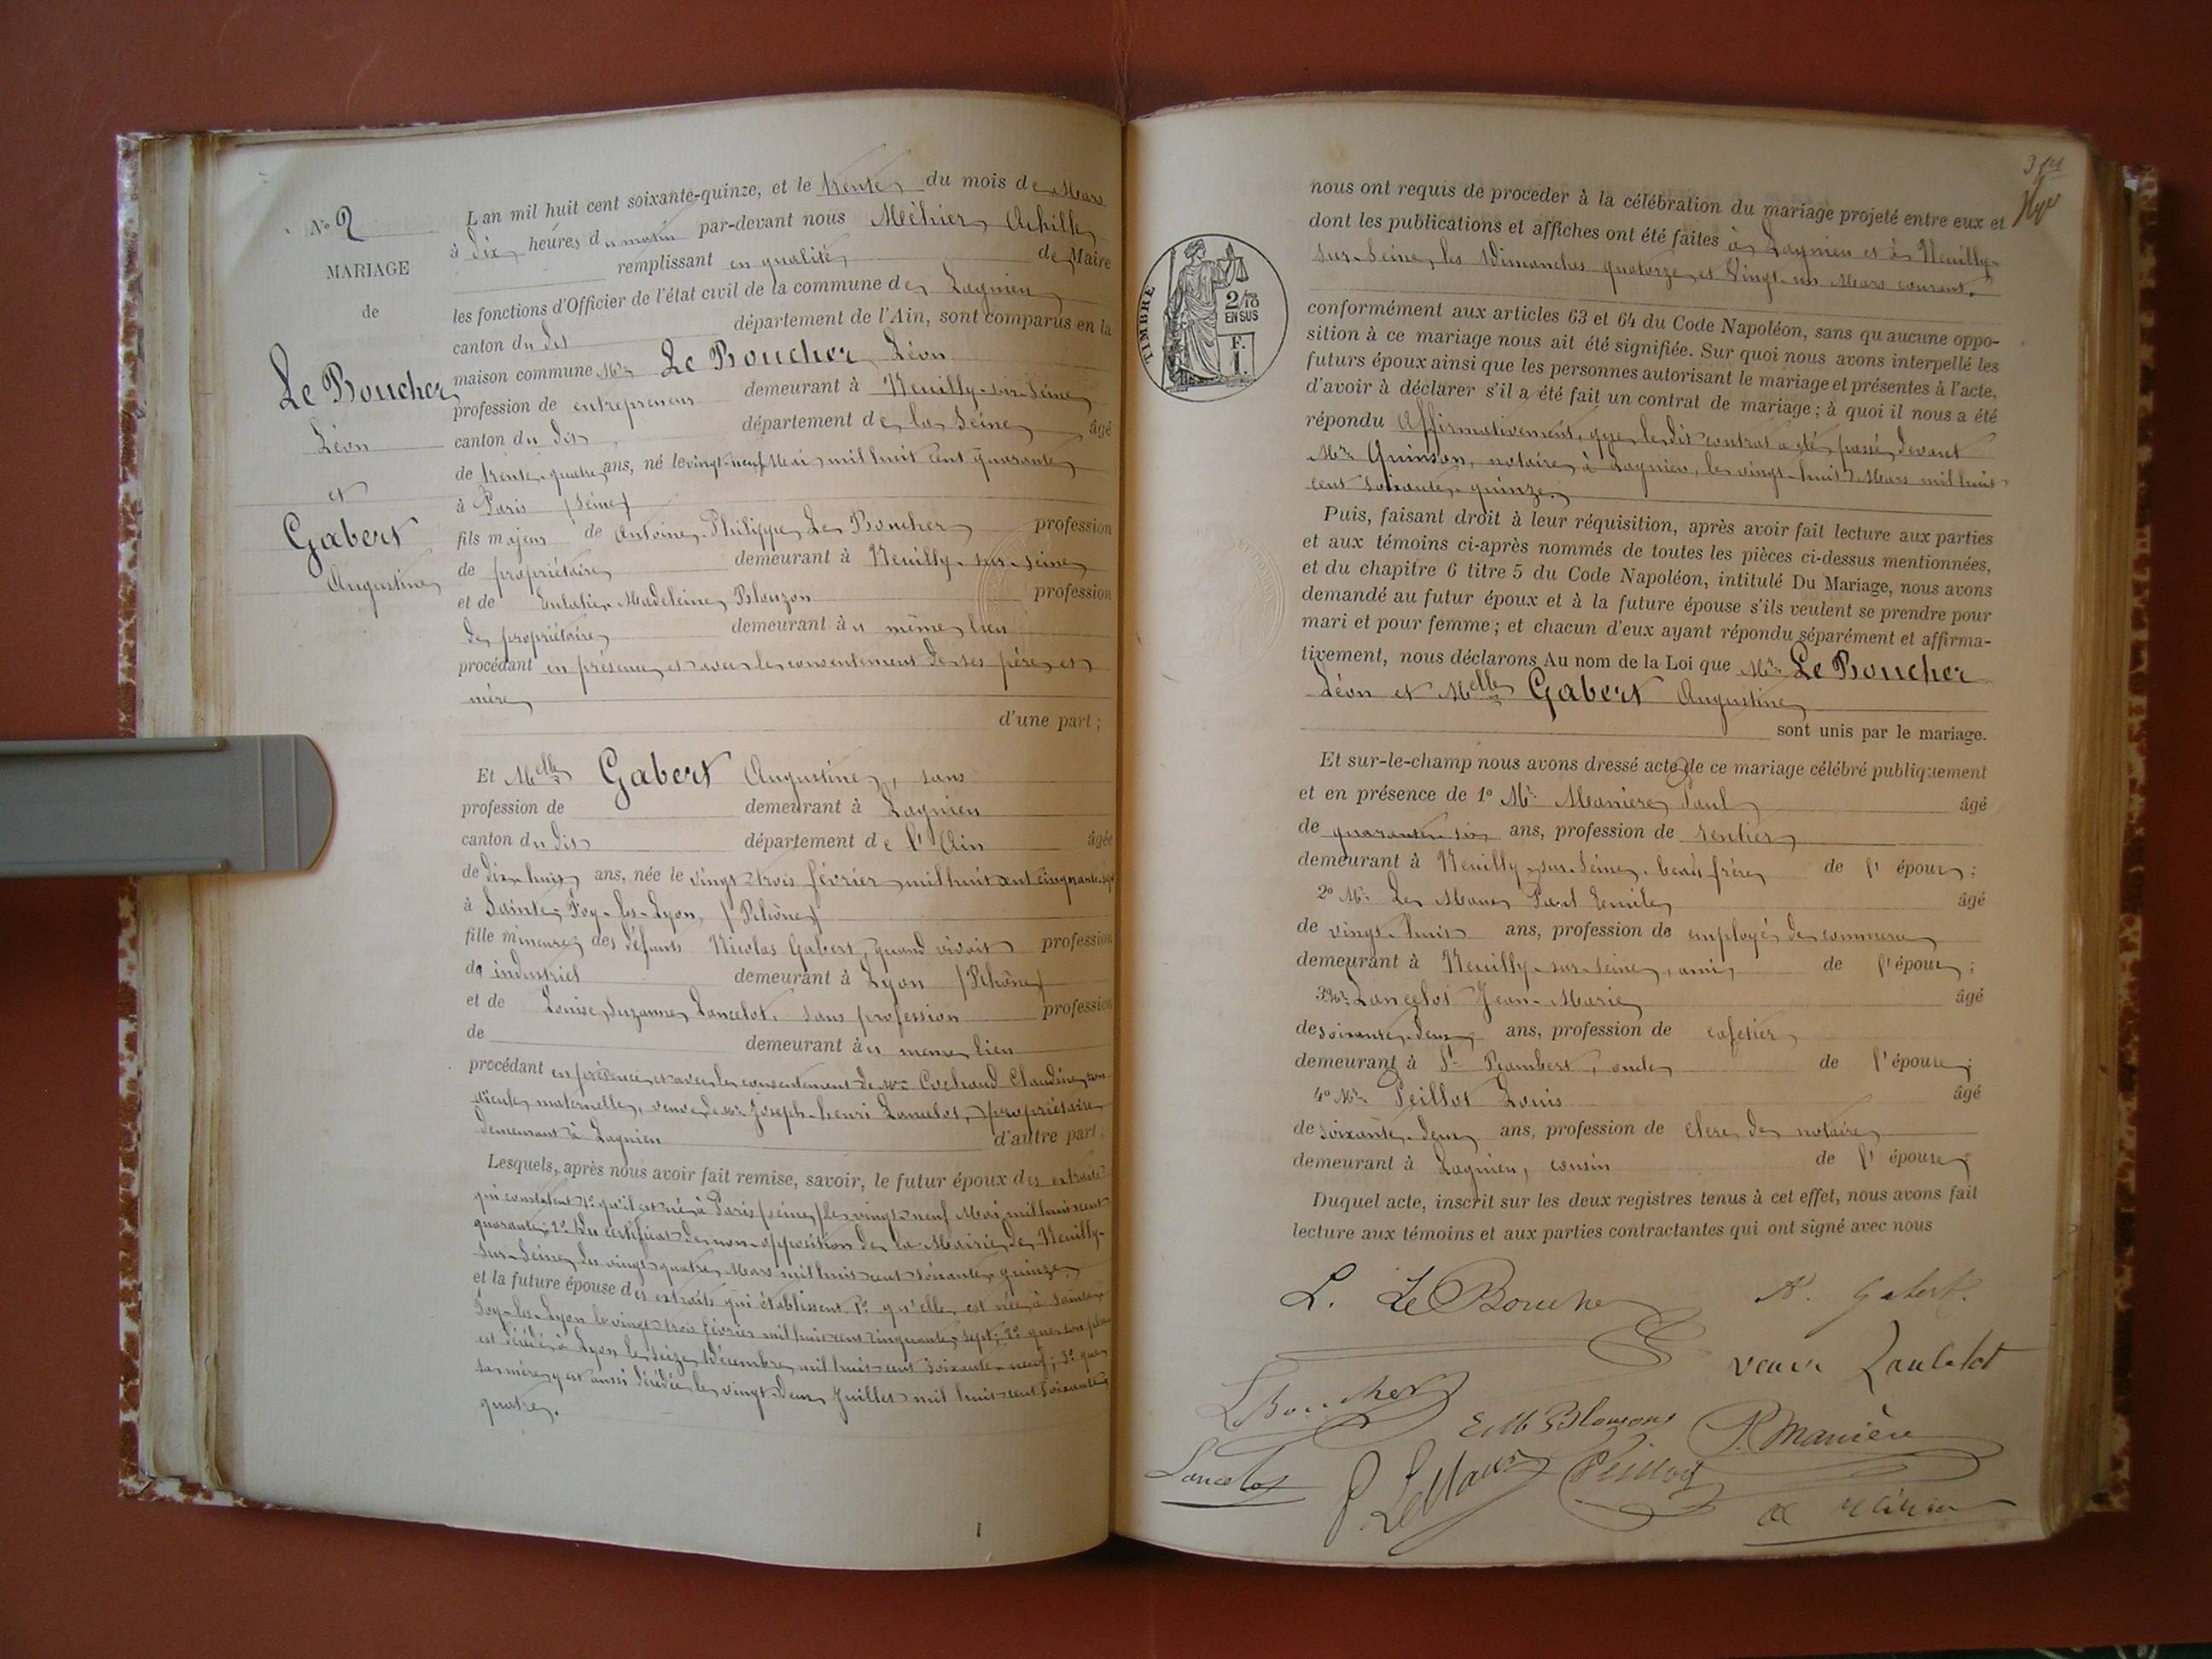 N° 2
MARIAGE
de
Le Boucher
Léon
et
Gabert
Augustine
L'an mil huit cent soixante-quinze, et le trente du mois de Mars
à dix heures du matin par-devant nous Méhier Achille
remplissant en qualité de Maire
les fonctions d'Officier de l'état civil de la commune de Lagnieu
canton du dit département de l'Ain, sont comparus en la
maison commune Mr Le Boucher Léon
profession de entrepreneur demeurant à Neuilly-sur-Seine
canton du dit département de la Seine âgé
de trente-quatre ans, né le vingt-neuf Mai mil huit cent quarante
à Paris (Seine)
fils majeur de Antoine-Philippe Le Boucher profession
de propriétaire demeurant à Neuilly-sur-Seine
et de Eulalie-Madeleine Blouzon profession
de propriétaire demeurant au même lieu
procédant en présence et avec le consentement de ses père et
mère
d'une part ;
Et Melle Gabert Augustine, sans
profession de demeurant à Lagnieu
canton du dit département de l'Ain âgée
de dix-huit ans, née le vingt-trois février mil huit cent cinquante-sept
à Sainte-Foy-les-Lyon, (Rhône)
fille mineure des défunts Nicolas Gabert, quand vivait profession
de industriel demeurant à Lyon (Rhône)
et de Louise Suzanne Lancelot, sans profession profession
de demeurant au même lieu
procédant en présence et avec le consentement de Claudine, son
aïeule maternelle, veuve de Mr Joseph-henri Lancelot, propriétaire
demeurant à Lagnieu d'autre part ;
Lesquels, après nous avoir fait remise, savoir, le futur époux des extraits
qui constatent 1° qu'il est né à Paris (Seine) le vingt-neuf Mai mil huit cent
quarante ; 2° Du certificat de non-opposition de la Mairie de Neuilly-
sur-Seine du vingt-quatre Mars mil huit cent soixante-quinze.
et la future épouse des extraits qui établissent 1° qu'elle est née à Sainte-
Foy-les-Lyon le vingt-trois février mil huit cent cinquante-sept ; 2° que son père
est décédé à Lyon le seize Décembre mil huit cent soixante-neuf ; 3° que
sa mère y est aussi décédée le vingt-deux Juillet mil huit cent soixante
quatre.
nous ont requis de procéder à la célébration du mariage projeté entre eux et
dont les publications et affiches ont été faites à Lagnieu et à Neuilly-
sur-Seine, les Dimanches quatorze et Vingt-un Mars courant.
TIMBRE
2/10
EN SUS
F.
1.
conformément aux articles 63 et 64 du Code Napoléon, sans qu'aucune oppo-
sition à ce mariage nous ait été signifiée. Sur quoi nous avons interpellé les
futurs époux ainsi que les personnes autorisant le mariage et présentes à l'acte,
d'avoir à déclarer s'il a été fait un contrat de mariage ; à quoi il nous a été
répondu affirmativement, que le dit contrat a été passé devant
Mr Quinson, notaire à Lagnieu, le vingt-huit Mars mil huit
cent soixante-quinze.
Puis, faisant droit à leur réquisition, après avoir fait lecture aux parties
et aux témoins ci-après nommés de toutes les pièces ci-dessus mentionnées,
et du chapitre 6 titre 5 du Code Napoléon, intitulé Du Mariage, nous avons
demandé au futur époux et à la future épouse s'ils veulent se prendre pour
mari et pour femme ; et chacun d'eux ayant répondu séparément et affirma-
tivement, nous déclarons Au nom de la Loi que Mr Le Boucher
Léon et Melle Gabert Augustine
sont unis par le mariage.
Et sur-le-champ nous avons dressé acte de ce mariage célébré publiquement
et en présence de 1° Mr Maniere Paul âgé
de quarante-six ans, profession de rentier
demeurant à Neuilly-sur-Seine, beau frère de l'époux ;
2° Mr Le Maue Paul Emile âgé
de vingt-huit ans, profession de employé de commerce
demeurant à Neuilly-sur-Seine, ami de l'époux ;
3° Mr Lancelot Jean-Marie âgé
de soixante-deux ans, profession de cafetier
demeurant à St Rambert, oncle de l'épouse ;
4° Mr Peillot Louis âgé
de soixante-deux ans, profession de clerc de notaire
demeurant à Lagnieu, cousin de l'épouse
Duquel acte, inscrit sur les deux registres tenus à cet effet, nous avons fait
lecture aux témoins et aux parties contractantes qui ont signé avec nous
L. Le Boucher A. Gabert.
veuve Lancelot
LeBoucher E M Blouzon P. Manière
Lancelot Peillot